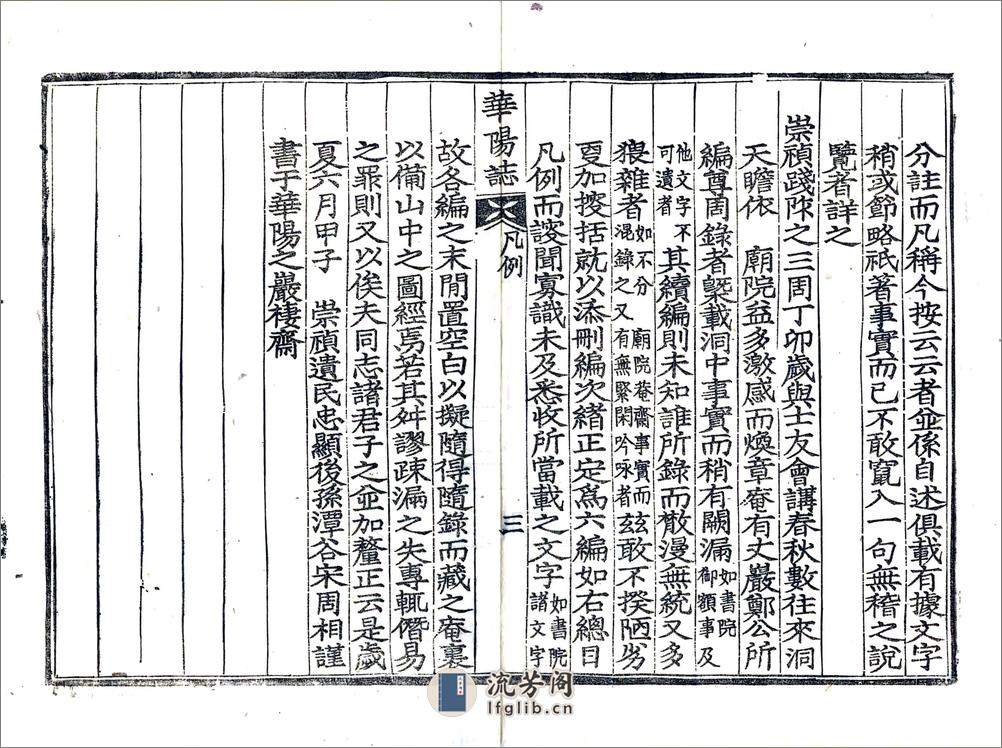 分註而凡稱今按云云者並係自述俱載有據文字
稍或節略祇著事實而已不敢竄入一句無稽之說
覽者詳之
崇禎踐阼之三周丁卯歲與士友會講春秋數往來洞
天瞻依　廟院益多激感而煥章庵有丈巖鄭公所
編尊周錄者槩載洞中事實而稍有闕漏如書院御額事及
他文字不可遺者其續編則未知誰所錄而散漫無統又多
猥雜者如不分廟院庵齋事實而混錄之又有無緊閑吟咏者玆敢不揆陋劣
更加檃括就以添刪編次緖正定爲六編如右總目
凡例而謏聞寡識未及悉收所當載之文字如書院諸文字
華陽誌 凡例 三
故各編之末閒置空白以擬隨得隨錄而藏之庵裏
以備山中之圖經焉若其舛謬疎漏之失專輒僭易
之罪則又以俟夫同志諸君子之並加釐正云是歲
夏六月甲子　崇禎遺民忠顯後孫潭谷宋周相謹
書于華陽之巖棲齋
流芳阁
lfglib.cn